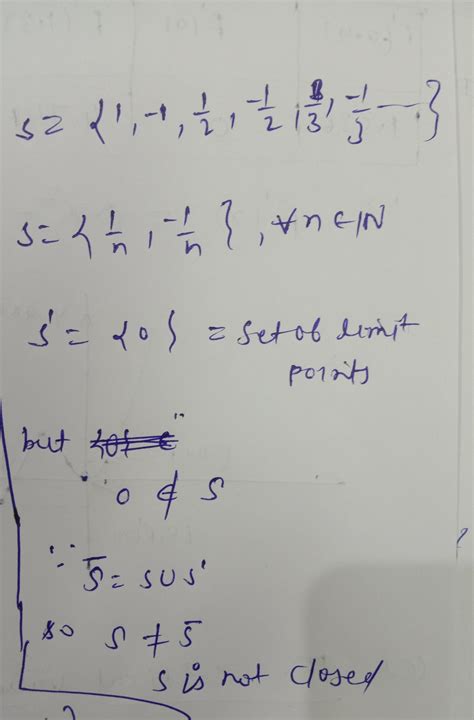 S = {1, -1, 1/2, -1/2, 1/3, -1/3 ---}
S = {1/n, -1/n}, ∀ n ∈ IN
S' = {0} = Set of limit
points
but
0 ∉ S
∵ S̄ = S ∪ S'
so S ≠ S̄
S is not closed